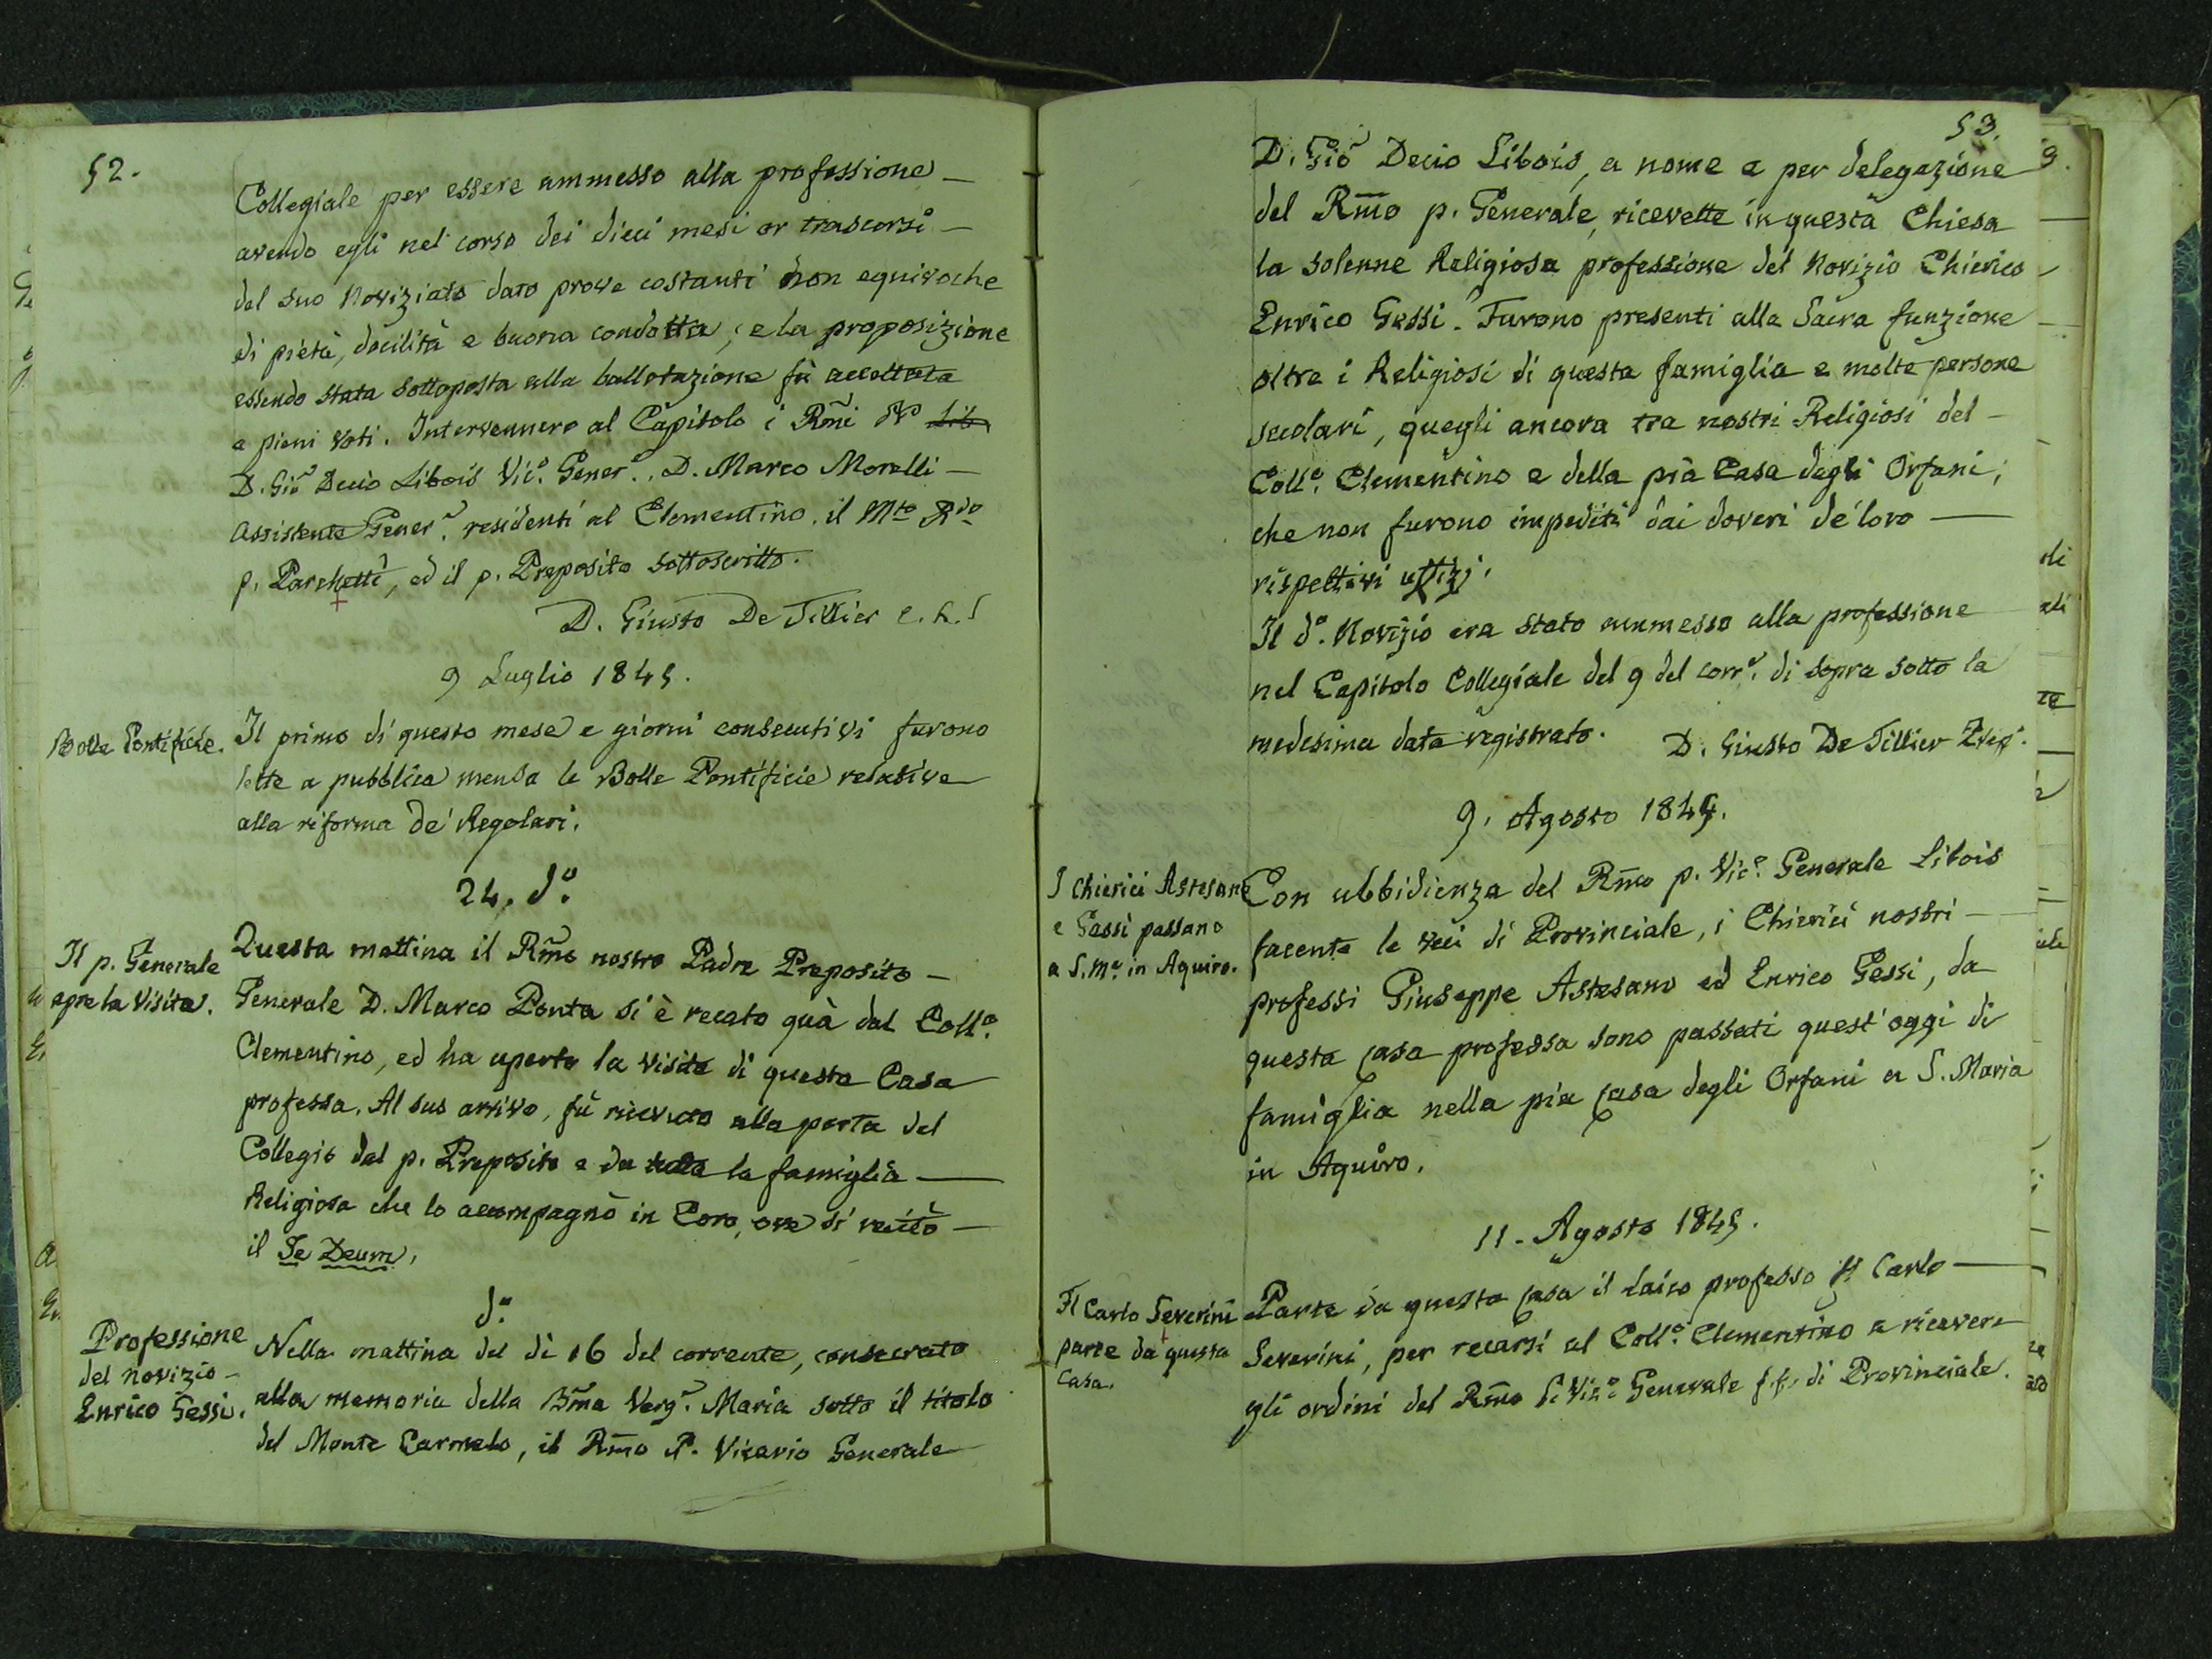 52.
Collegiale per essere ammesso alla professione —
avendo egli nel corso dei dieci mesi or trascorsi —
del suo Noviziato dato prove costanti non equivoche
di pietà, docilità e buona condotta; e la proposizione
essendo stata sottoposta alla ballotazione fù accettata
a pieni voti. Intervennero al Capitolo i Rm̃i PP
D. Giõ Decio Libois Vic.º Gener.ᵉ, D. Marco Morelli —
Assistente Gener.ᵉ residenti al Clementino, il Mto Rdo
p. Parchetti, ed il p. Preposito sottoscritto.
D. Giusto De Tillier C.R.S
9 Luglio 1849.
Bolle Pontificie.
Il primo di questo mese e giorni consecutivi furono
lette a pubblica mensa le Bolle Pontificie relative
alla riforma de' Regolari.
24. d.º
Il p. Generale
apre la Visita.
Questa mattina il Rm̃o nostro Padre Preposito —
Generale D. Marco Ponta si è recato quà dal Coll.º
Clementino, ed ha aperto la visita di questa Casa
professa. Al suo arrivo, fù ricevuto alla porta del
Collegio dal p. Preposito e da tutta la famiglia —
Religiosa che lo accompagnò in Coro, ove si recitò —
il Te Deum.
d.º
Professione
del novizio —
Enrico Gessi.
Nella mattina del dì 16 del corrente, consecrato
alla memoria della Bm̃a Verg.ᵉ Maria sotto il titolo
del Monte Carmelo, il Rm̃o P. Vicario Generale
53.
D. Giõ Decio Libois, a nome e per delegazione
del Rm̃o p. Generale, ricevette in questa Chiesa
la solenne Religiosa professione del Novizio Chierico
Enrico Gessi. Furono presenti alla Sacra funzione —
oltre i Religiosi di questa famiglia e molte persone
secolari, quegli ancora tra nostri Religiosi del —
Coll.º Clementino e della pia Casa degli Orfani,
che non furono impediti dai doveri de' loro —
rispettivi uffizj.
Il d.º Novizio era stato ammesso alla professione
nel Capitolo Collegiale del 9 del corr.ᵉ di sopra sotto la
medesima data registrato. D. Giusto De Tillier Prep.
9. Agosto 1849.
I Chierici Astesano
e Gessi passano
a S. Mª in Aquiro.
Con ubbidienza del Rm̃o p. Vic.º Generale Libois
facente le veci di Provinciale, i Chierici nostri —
professi Giuseppe Astesano ed Enrico Gessi, da
questa casa professa sono passati quest'oggi di
famiglia nella pia casa degli Orfani a S. Maria
in Aquiro.
11. Agosto 1849.
Fl Carlo Severini
parte da questa
Casa.
Parte da questa casa il laico professo Fl Carlo —
Severini, per recarsi al Coll.º Clementino a ricevere
gli ordini del Rm̃o P. Vic.º Generale f.f. di Provinciale.